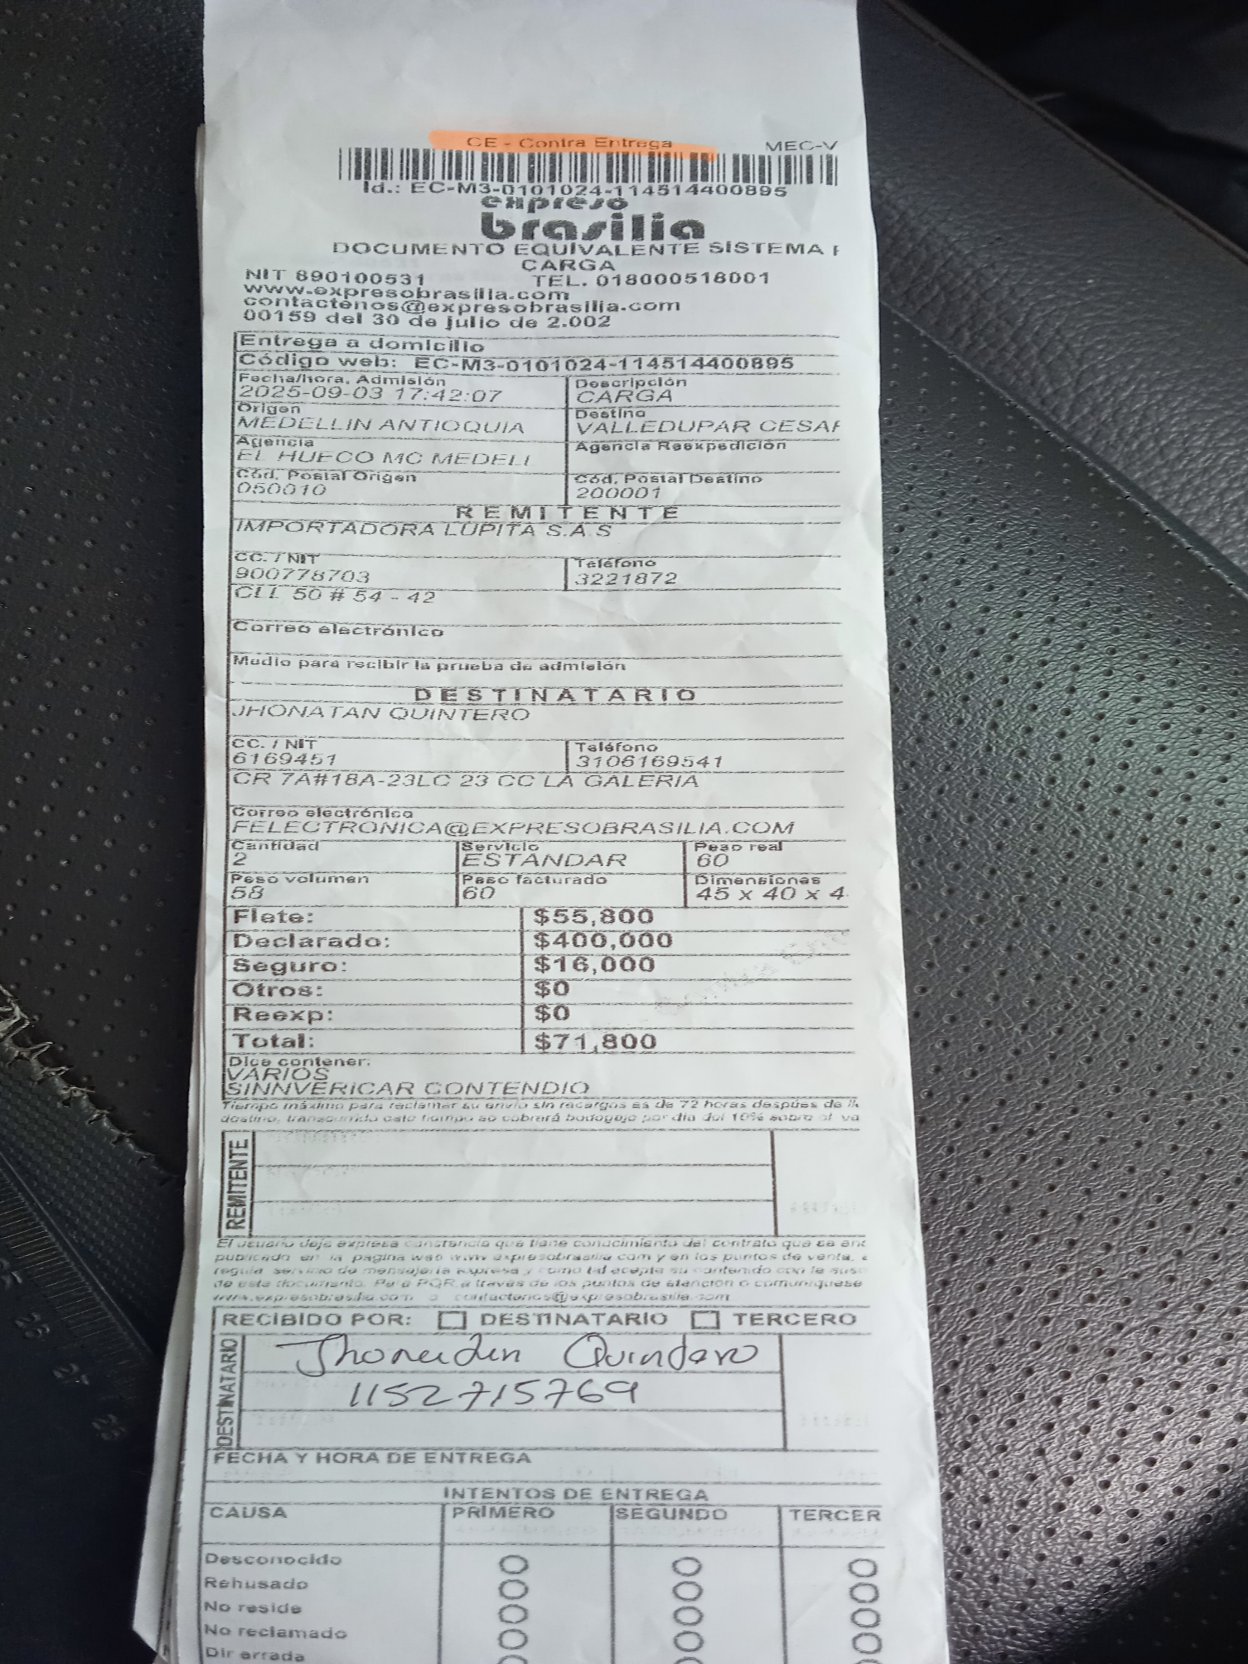 CE - Contra Entrega
MEC-V
Id.: EC-M3-0101024-114514400895
expreso
brasilia
DOCUMENTO EQUIVALENTE SISTEMA
CARGA
NIT 890100531 TEL. 018000518001
www.expresobrasilia.com
contactenos@expresobrasilia.com
00159 del 30 de julio de 2.002
Entrega a domicilio
Código web: EC-M3-0101024-114514400895
Fecha/hora. Admisión Descripción
2025-09-03 17:42:07 CARGA
Origen Destino
MEDELLIN ANTIOQUIA VALLEDUPAR CESAR
Agencia Agencia Reexpedición
EL HUECO MC MEDELL
Cód. Postal Origen Cód. Postal Destino
050010 200001
REMITENTE
IMPORTADORA LUPITA S.A.S
CC. / NIT Teléfono
900778703 3221872
CLL 50 # 54 - 42
Correo electrónico
Medio para recibir la prueba de admisión
DESTINATARIO
JHONATAN QUINTERO
CC. / NIT Teléfono
6169451 3106169541
CR 7A#18A-23LC 23 CC LA GALERIA
Correo electrónico
FELECTRONICA@EXPRESOBRASILIA.COM
Cantidad Servicio Peso real
2 ESTANDAR 60
Peso volumen Peso facturado Dimensiones
58 60 45 x 40 x 4
Flete: $55,800
Declarado: $400,000
Seguro: $16,000
Otros: $0
Reexp: $0
Total: $71,800
Dice contener:
VARIOS
SINNVERICAR CONTENDIO
Tiempo máximo para reclamar su envío sin recargos es de 72 horas después de
destino, transcurrido este tiempo se cobrará bodegaje por día del 10% sobre el va
REMITENTE
El usuario deja expresa constancia que tiene conocimiento del contrato que se
publicado en la pagina web www.expresobrasilia.com y en los puntos de venta,
regula servicio de mensajería expresa y como tal acepta su contenido con la
de este documento. PQR a través de los puntos de atención o comuníquese
www.expresobrasilia.com o contactenos@expresobrasilia.com
RECIBIDO POR: DESTINATARIO TERCERO
DESTINATARIO
Quintero
1152715769
FECHA Y HORA DE ENTREGA
INTENTOS DE ENTREGA
CAUSA PRIMERO SEGUNDO TERCER
Desconocido
Rehusado
No reside
No reclamado
Dir errada